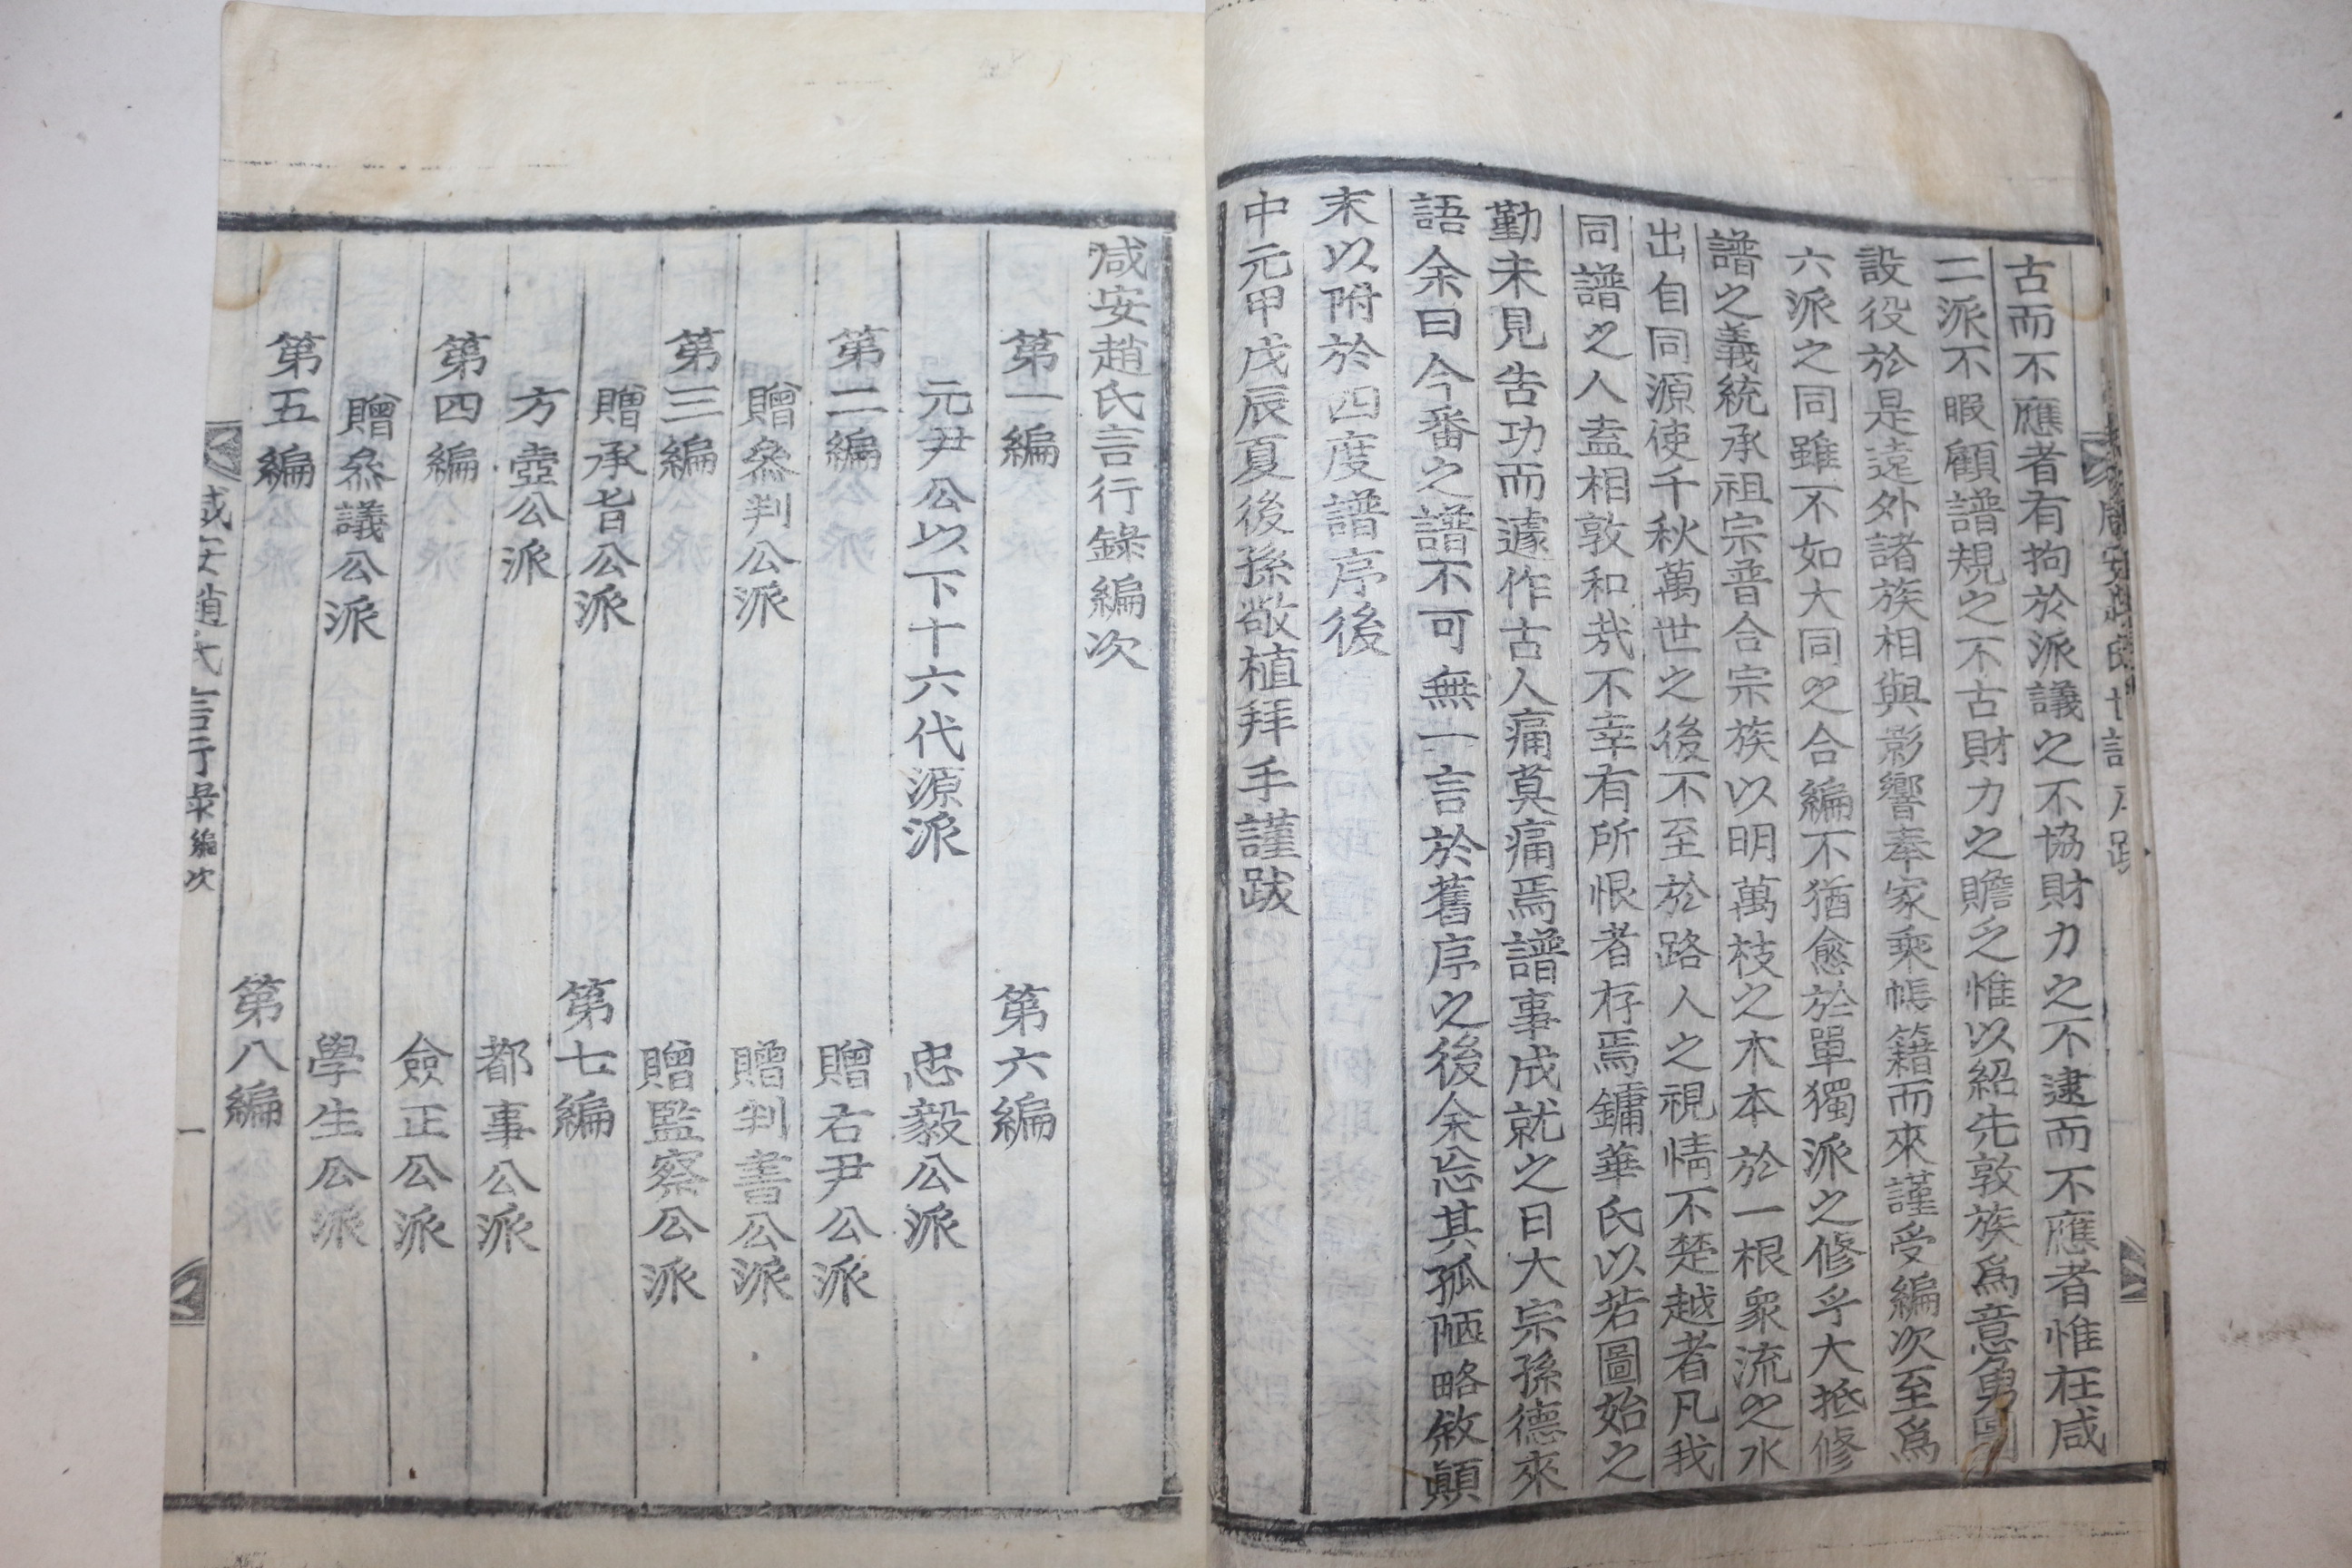 古而不應者有拘於派議之不協財力之不逮而不應者惟在咸
二派不暇顧譜規之不古財力之贍乏惟以紹先敦族爲意勇圖
設役於是遠外諸族相與影響奉家乘帳籍而來謹受編次至爲
六派之同雖不如大同之合編不猶愈於單獨派之修乎大抵修
譜之義統承祖宗普合宗族以明萬枝之木本於一根衆流之水
出自同源使千秋萬世之後不至於路人之視情不楚越者凡我
同譜之人盍相敦和哉不幸有所恨者存焉鏞華氏以若圖始之
勤未見告功而遽作古人痛莫痛焉譜事成就之日大宗孫德來
語余曰今番之譜不可無一言於舊序之後余忘其孤陋略敘顛
末以附於四度譜序後
中元甲戌辰夏後孫敬植拜手謹跋
咸安趙氏言行錄編次
第一編
元尹公以下十六代源派
第二編
贈叅判公派
第三編
贈承旨公派
方壺公派
第四編
贈叅議公派
第五編
第六編
忠毅公派
贈右尹公派
贈判書公派
贈監察公派
第七編
都事公派
僉正公派
學生公派
第八編
咸安趙氏言行錄 編次
一